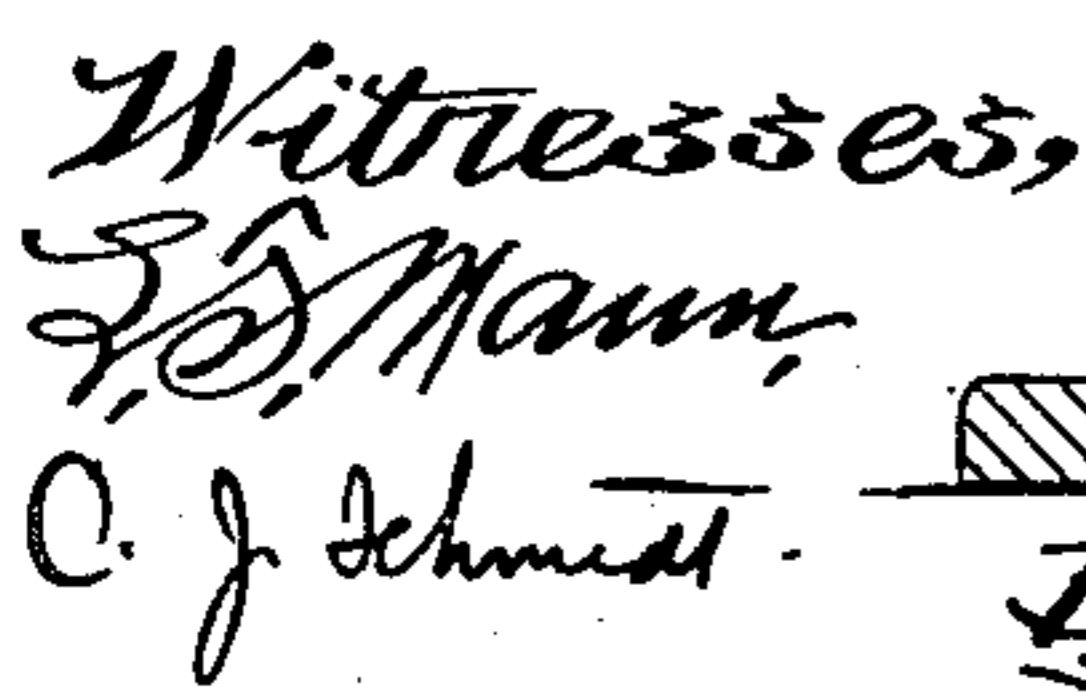 Witnesses,
Mann,
C. J. Schmidt.